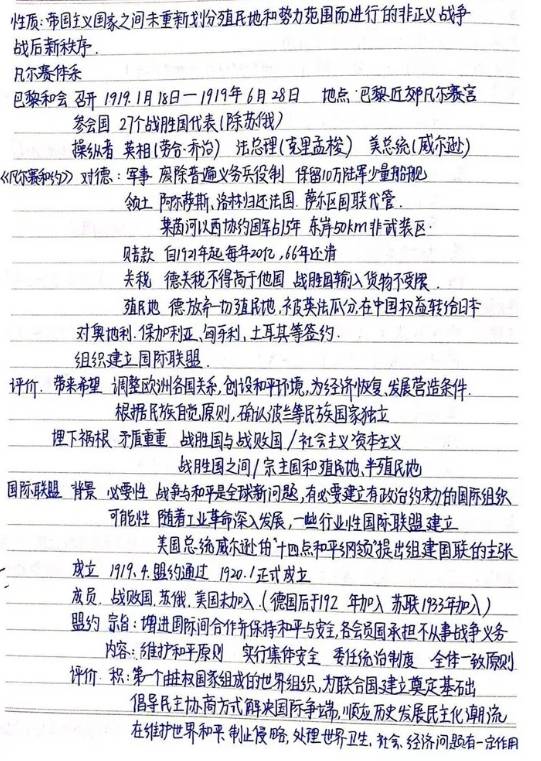 性质:帝国主义国家之间未重新划分殖民地和势力范围而进行的非正义战争
战后新秩序.
凡尔赛体系
巴黎和会 召开 1919.1月18日—1919年6月28日 地点:巴黎近郊凡尔赛宫
参会国 27个战胜国代表(除苏俄)
操纵者 英相(劳合·乔治) 法总理(克里孟梭) 美总统(威尔逊)
《凡尔赛和约》 对德:军事 废除普遍义务兵役制 保留10万陆军少量船舰
领土 阿尔萨斯、洛林归还法国. 萨尔区国联代管.
莱茵河以西协约国军占15年 东岸50km非武装区.
赔款 自1921年起每年20亿,66年还清
关税 德关税不得高于他国 战胜国输入货物不受限.
殖民地 德放弃一切殖民地,被英法瓜分,在中国权益转给日本
对奥地利.保加利亚、匈牙利,土耳其等签约.
组织建立国际联盟.
评价. 带来希望 调整欧洲各国关系,创设和平环境,为经济恢复、发展营造条件.
根据民族自觉原则,确认波兰等民族国家独立
埋下祸根 矛盾重重 战胜国与战败国/社会主义资本主义
战胜国之间/宗主国和殖民地、半殖民地
国际联盟 背景 必要性 战争与和平是全球新问题,有必要建立有政治约束力的国际组织
可能性 随着工业革命深入发展,一些行业性国际联盟建立
美国总统威尔逊的"十四点和平纲领"提出组建国联的主张
成立 1919.4.盟约通过 1920.1正式成立
成员. 战败国.苏俄.美国未加入.(德国后于192 年加入 苏联1933年加入)
盟约 宗旨:增进国际间合作并保持和平与安全,各会员国承担不从事战争义务
内容:维护和平原则 实行集体安全 委任统治制度 全体一致原则
评价 积:第一个由主权国家组成的世界组织,为联合国建立奠定基础
倡导民主协商方式解决国际争端,顺应历史发展民主化潮流
在维护世界和平、制止侵略,处理世界卫生、社会、经济问题有一定作用